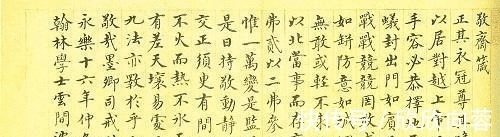 敬齋箴
正其衣冠尊
以居對越上
手容必恭擇地
蟻封出門如
戰戰兢兢罔敢
如缾防意如
無敢或輕不
以北當事而
弗貳以二弗參
惟一萬變是監
是曰持敬動靜
交正須臾有間
不火而熱不冰
有差天壤易處
九法亦斁於乎
敬哉墨卿司戒
永樂十六年仲
翰林學士雲間沈
快传号